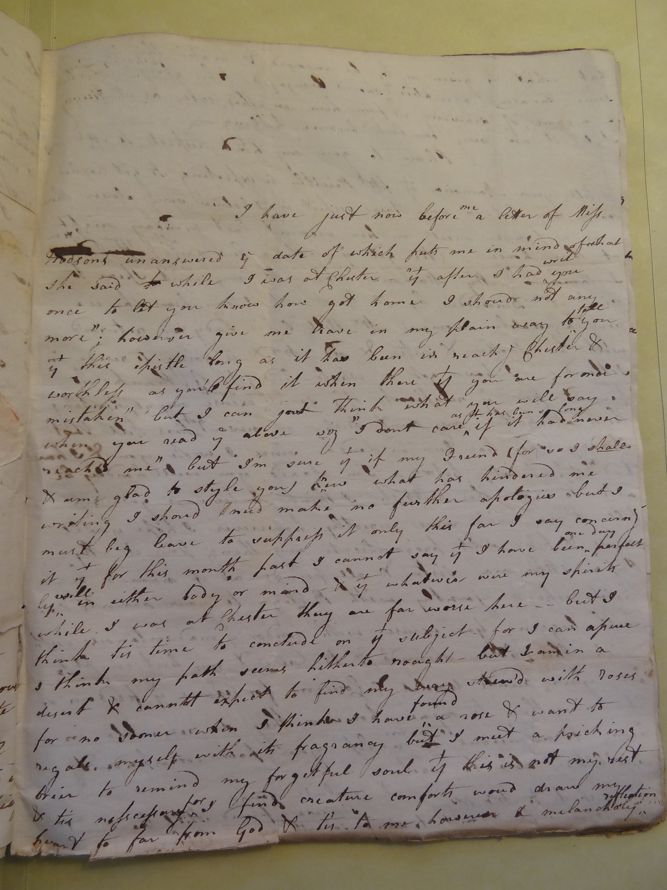 I have just now before me a letter of Miss
Hodsons unanswered ye date of which puts me in mind of what
she said to while I was at Chester - yt after I had writ
once to let you know how got home I should not any
more"; however give me leave in my plain way to tell you
yt this epistle long as it has been in reachg Chester &
worthless as you'll find it when there yt you are for once
mistaken" but I can just think what you will say
when you read ye above viz "I dont care as it has been so long if it had never
reach'd me" but I'm sure yt if my Friend (for so I shall
& am glad to style you) knew what has hindered me
writing I should need make no further apologies but I
must beg leave to suppress it only this far I say concerng
it yt for this month past I cannot say yt I have been one day perfect
ly well in either body or mind & yt whatever were my spirits
while I was at Chester they are far worse here -- but I
think tis time to conclude on yt subject for I can assure
I think my path seems hitherto rough - but I am in a
desert & cannot expect to find my way strew'd with roses
for no sooner when I think I have found a rose & want to
regale myself with its fragrancy but I meet a pricking
brier to remind my forgetful soul yt this is not my rest
& tis necessary for I find creature comforts woud draw my
heart to far from God & tis to me however a melancholy reflection